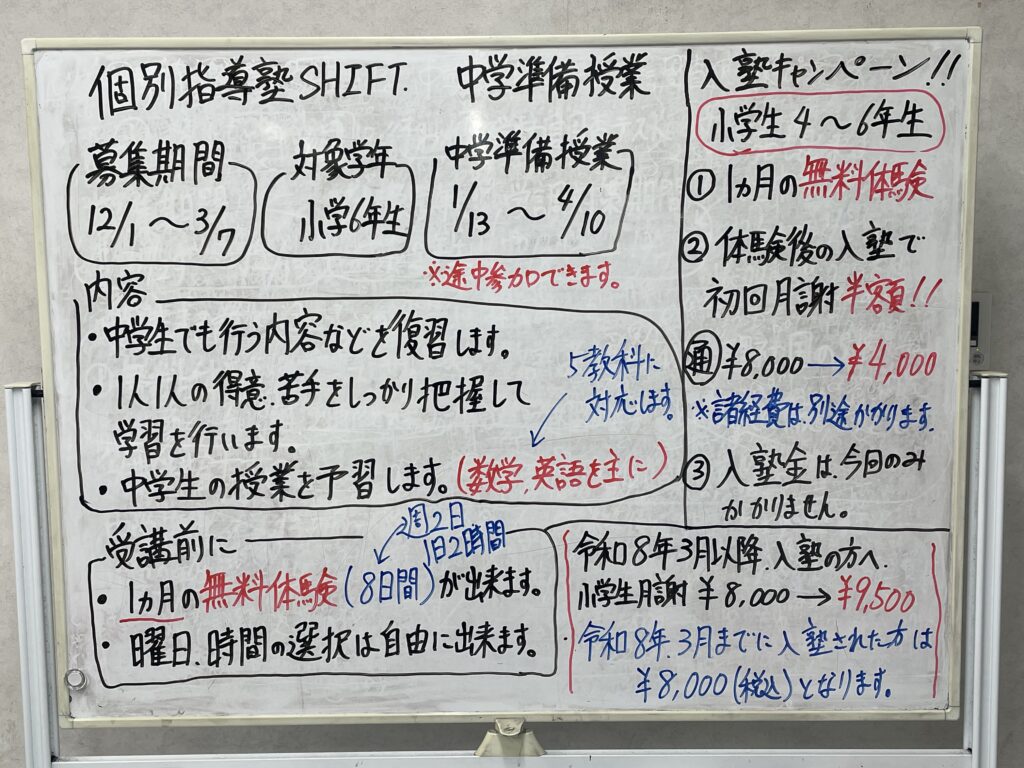 個別指導塾SHIFT. 中学準備授業
募集期間
12/1 〜 3/7
対象学年
小学6年生
中学準備授業
1/13 〜 4/10
※途中参加できます。
内容
・中学生でも行う内容などを復習します。
・1人1人の得意、苦手をしっかり把握して
学習を行います。
5教科に
対応します。
・中学生の授業を予習します。(数学、英語を主に)
受講前に
週2日
1日2時間
・1ヵ月の無料体験(8日間)が出来ます。
・曜日、時間の選択は自由に出来ます。
入塾キャンペーン!!
小学生4〜6年生
① 1ヵ月の無料体験
② 体験後の入塾で
初回月謝半額!!
通 ¥8,000→¥4,000
※諸経費は、別途かかります。
③ 入塾金は、今回のみ
かかりません。
令和8年3月以降、入塾の方へ、
小学生月謝 ¥8,000→¥9,500
・令和8年、3月までに入塾された方は
¥8,000(税込)となります。